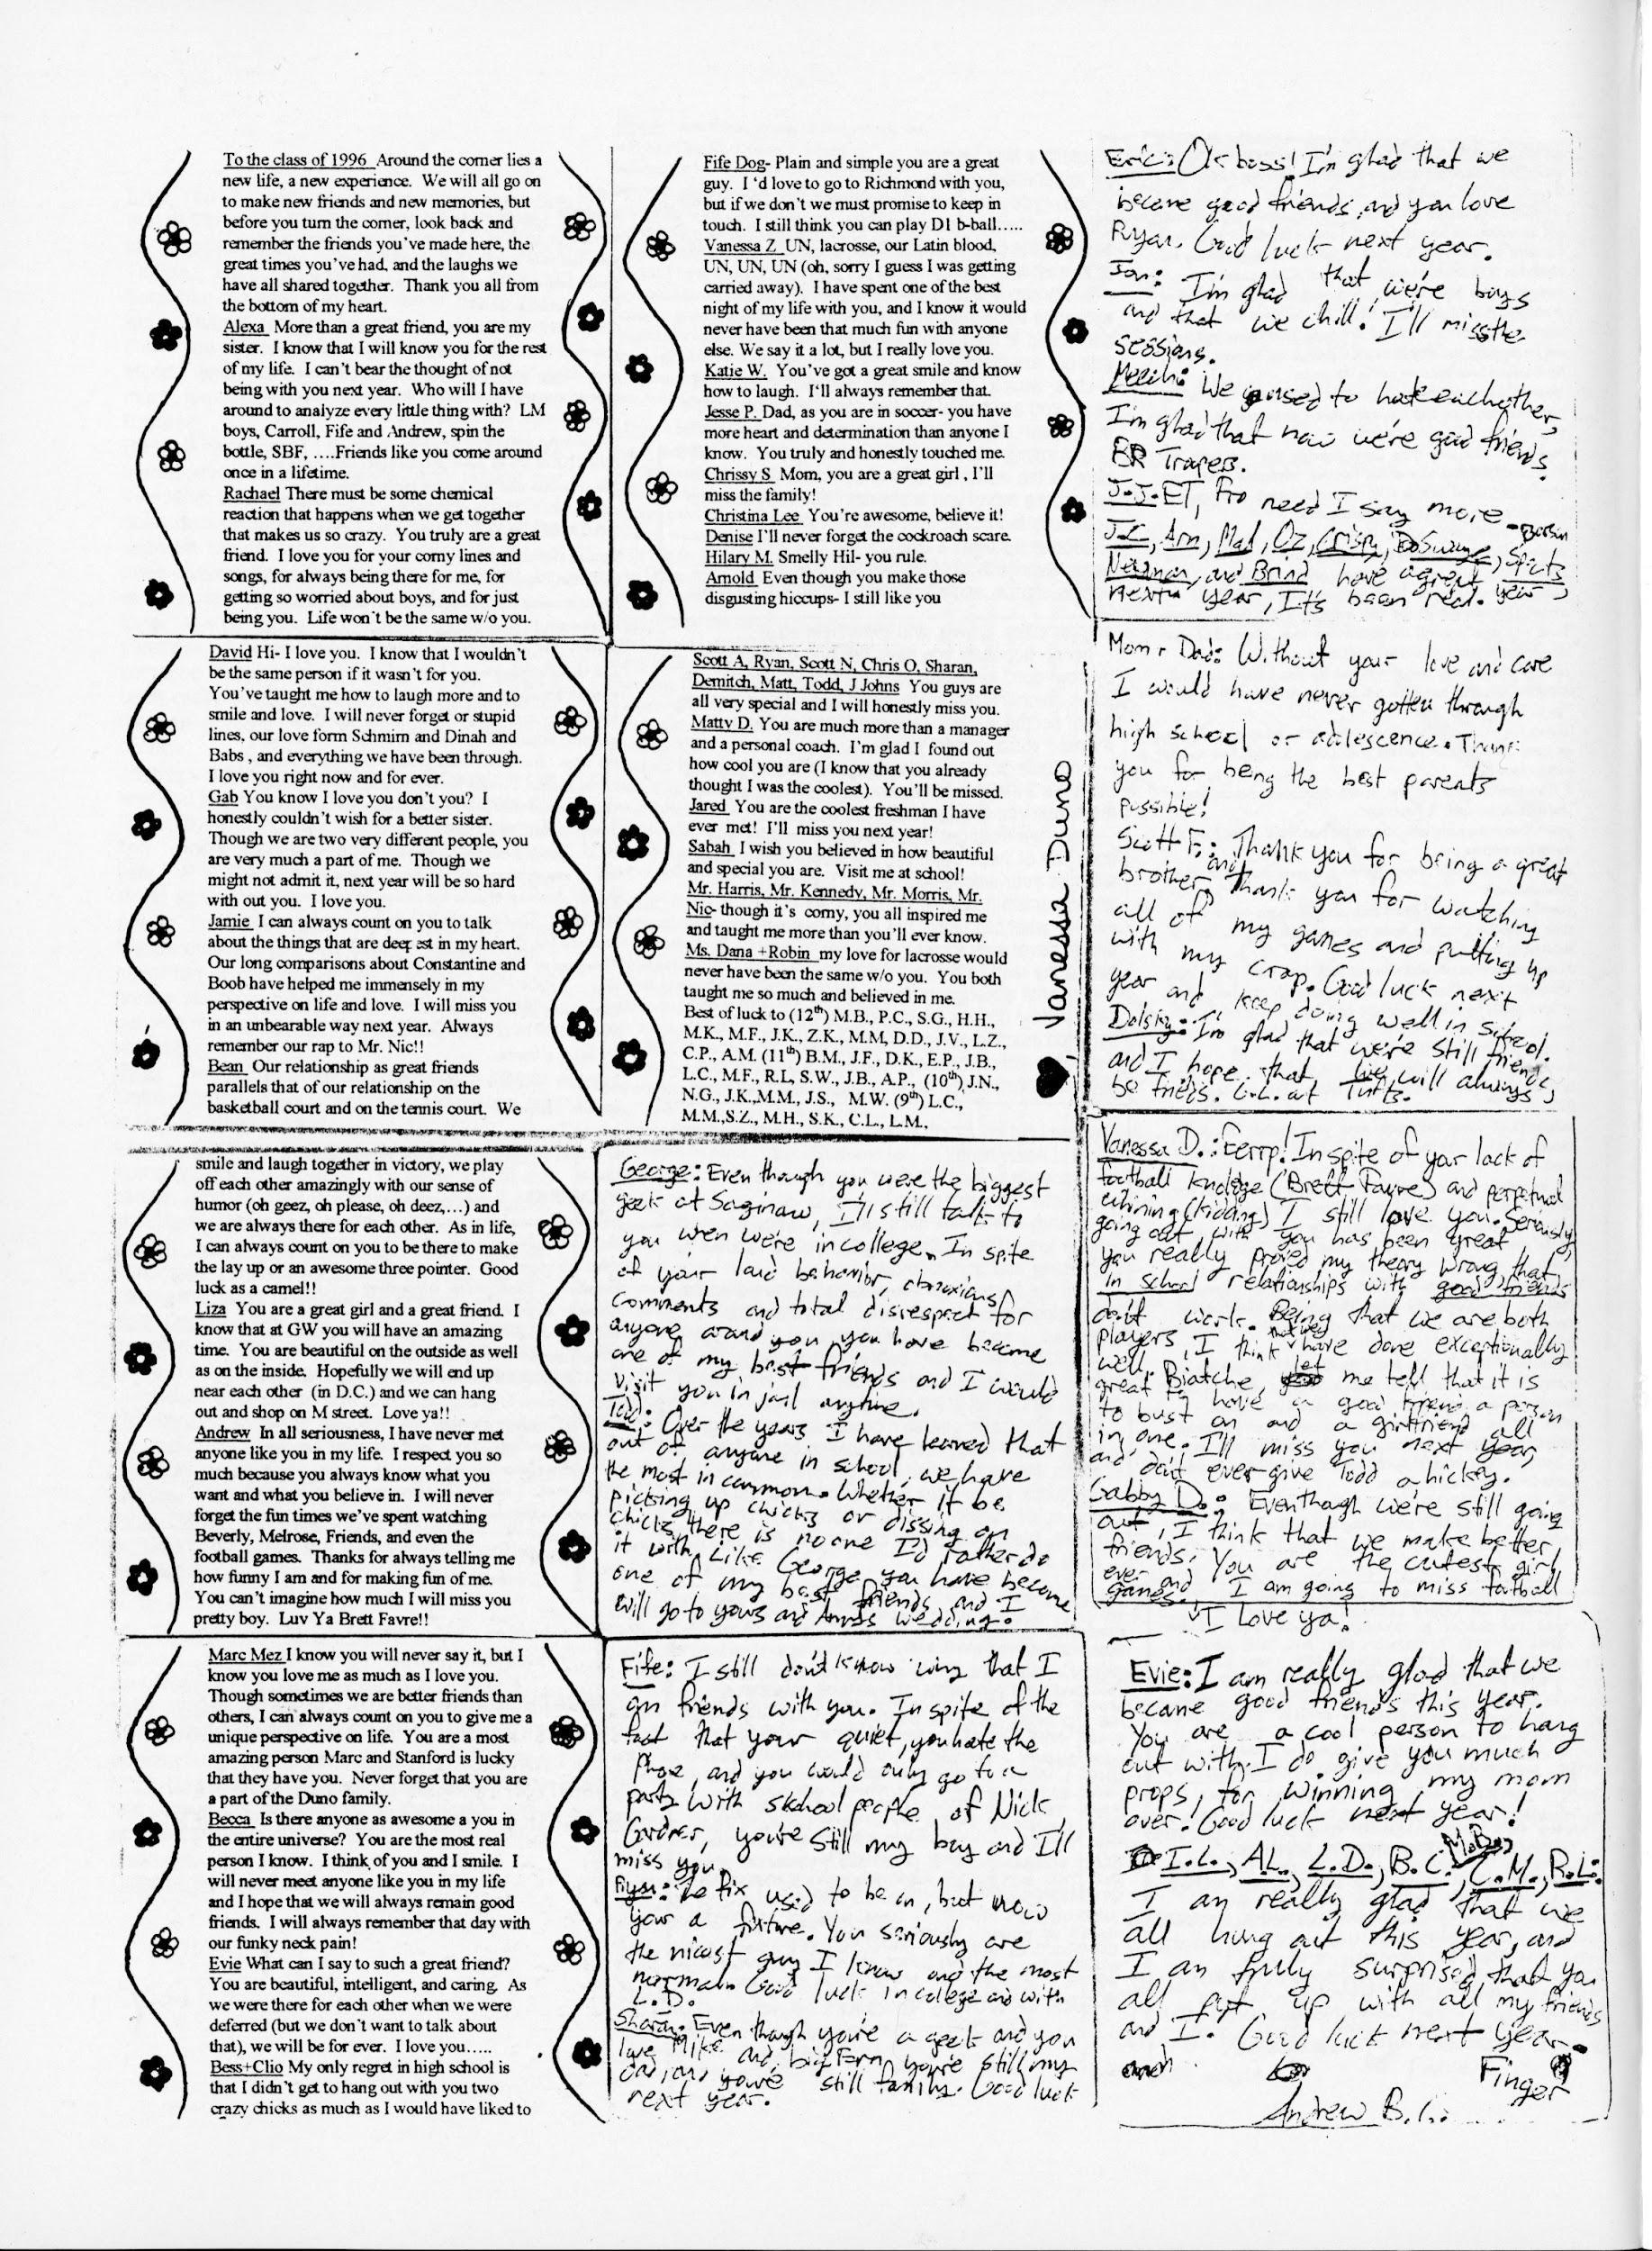 To the class of 1996 Around the corner lies a
new life, a new experience. We will all go on
to make new friends and new memories, but
before you turn the corner, look back and
remember the friends you've made here, the
great times you've had, and the laughs we
have all shared together. Thank you all from
the bottom of my heart.
Alexa More than a great friend, you are my
sister. I know that I will know you for the rest
of my life. I can't bear the thought of not
being with you next year. Who will I have
around to analyze every little thing with? LM
boys, Carroll, Fife and Andrew, spin the
bottle, SBF, ....Friends like you come around
once in a lifetime.
Rachael There must be some chemical
reaction that happens when we get together
that makes us so crazy. You truly are a great
friend. I love you for your corny lines and
songs, for always being there for me, for
getting so worried about boys, and for just
being you. Life won't be the same w/o you.
David Hi- I love you. I know that I wouldn't
be the same person if it wasn't for you.
You've taught me how to laugh more and to
smile and love. I will never forget or stupid
lines, our love form Schmirn and Dinah and
Babs , and everything we have been through.
I love you right now and for ever.
Gab You know I love you don't you? I
honestly couldn't wish for a better sister.
Though we are two very different people, you
are very much a part of me. Though we
might not admit it, next year will be so hard
with out you. I love you.
Jamie I can always count on you to talk
about the things that are deepest in my heart.
Our long comparisons about Constantine and
Boob have helped me immensely in my
perspective on life and love. I will miss you
in an unbearable way next year. Always
remember our rap to Mr. Nic!!
Bean Our relationship as great friends
parallels that of our relationship on the
basketball court and on the tennis court. We
smile and laugh together in victory, we play
off each other amazingly with our sense of
humor (oh geez, oh please, oh deez,...) and
we are always there for each other. As in life,
I can always count on you to be there to make
the lay up or an awesome three pointer. Good
luck as a camel!!
Liza You are a great girl and a great friend. I
know that at GW you will have an amazing
time. You are beautiful on the outside as well
as on the inside. Hopefully we will end up
near each other (in D.C.) and we can hang
out and shop on M street. Love ya!!
Andrew In all seriousness, I have never met
anyone like you in my life. I respect you so
much because you always know what you
want and what you believe in. I will never
forget the fun times we've spent watching
Beverly, Melrose, Friends, and even the
football games. Thanks for always telling me
how funny I am and for making fun of me.
You can't imagine how much I will miss you
pretty boy. Luv Ya Brett Favre!!
Marc Mez I know you will never say it, but I
know you love me as much as I love you.
Though sometimes we are better friends than
others, I can always count on you to give me a
unique perspective on life. You are a most
amazing person Marc and Stanford is lucky
that they have you. Never forget that you are
a part of the Duno family.
Becca Is there anyone as awesome a you in
the entire universe? You are the most real
person I know. I think of you and I smile. I
will never meet anyone like you in my life
and I hope that we will always remain good
friends. I will always remember that day with
our funky neck pain!
Evie What can I say to such a great friend?
You are beautiful, intelligent, and caring. As
we were there for each other when we were
deferred (but we don't want to talk about
that), we will be for ever. I love you.....
Bess+Clio My only regret in high school is
that I didn't get to hang out with you two
crazy chicks as much as I would have liked to
Fife Dog- Plain and simple you are a great
guy. I 'd love to go to Richmond with you,
but if we don't we must promise to keep in
touch. I still think you can play D1 b-ball.....
Vanessa Z UN, lacrosse, our Latin blood,
UN, UN, UN (oh, sorry I guess I was getting
carried away). I have spent one of the best
night of my life with you, and I know it would
never have been that much fun with anyone
else. We say it a lot, but I really love you.
Katie W. You've got a great smile and know
how to laugh. I'll always remember that.
Jesse P. Dad, as you are in soccer- you have
more heart and determination than anyone I
know. You truly and honestly touched me.
Chrissy S Mom, you are a great girl , I'll
miss the family!
Christina Lee You're awesome, believe it!
Denise I'll never forget the cockroach scare.
Hilary M. Smelly Hil- you rule.
Arnold Even though you make those
disgusting hiccups- I still like you
Scott A, Ryan, Scott N, Chris O, Sharan,
Demitch, Matt, Todd, J Johns You guys are
all very special and I will honestly miss you.
Matty D. You are much more than a manager
and a personal coach. I'm glad I found out
how cool you are (I know that you already
thought I was the coolest). You'll be missed.
Jared You are the coolest freshman I have
ever met! I'll miss you next year!
Sabah I wish you believed in how beautiful
and special you are. Visit me at school!
Mr. Harris, Mr. Kennedy, Mr. Morris, Mr.
Nic- though it's corny, you all inspired me
and taught me more than you'll ever know.
Ms. Dana +Robin my love for lacrosse would
never have been the same w/o you. You both
taught me so much and believed in me.
Best of luck to (12th) M.B., P.C., S.G., H.H.,
M.K., M.F., J.K., Z.K., M.M, D.D., J.V., L.Z.,
C.P., A.M. (11th) B.M., J.F., D.K., E.P., J.B.,
L.C., M.F., R.L, S.W., J.B., A.P., (10th) J.N.,
N.G., J.K.,M.M., J.S., M.W. (9th) L.C.,
M.M.,S.Z., M.H., S.K., C.L., L.M.,
Vanessa Duno
George: Even though you were the biggest
geek at Saginaw, I'll still talk to
you wen we're in college. In spite
of your loud behavior, obnoxious
comments and total disrespect for
anyone around you you have become
one of my best friends and I would
visit you in jail anytime.
Todd: Over the years I have learned that
out of anyone in school, we have
the most in common. Whether it be
picking up chicks or dissing on
chicks, there is no one I'd rather do
it with. Like George you have become
one of my best friends and I
will go to yours and Annas wedding.
Fife: I still don't know why that I
am friends with you. In spite of the
fact that your quiet, you hate the
phone, and you would only go to a
party with skchool people of Nick
Gardner, you're still my boy and I'll
miss you.
Ryan: Le fix used to be in, but now
your a fixture. You seriously are
the nicest guy I know and the most
normal. Good luck in college and with
L.D.
Sharan: Even though you're a geek and you
love Mike and big Fern you're still my
and you're still family. Good luck
next year.
Eric: Ok boss! I'm glad that we
became good friends, and you love
Ryan. Good luck next year.
Jon: I'm glad that we're boys
and that we chill! I'll miss the
sessions.
We used to hate eachother,
I'm glad that now we're good friends.
BR Trapers.
J.J. ET, Fro need I say more
J.C., Arn, Mat, Oz, Crispy,
Newman, and Brind have a great year
next year, It's been real.
Mom + Dad: Without your love and care
I would have never gotten through
high school or adolescence. Thank
you for being the best parents
possible!
Scott F.: Thank you for being a great
brother and thank you for watching
all of my games and putting up
with my crap. Good luck next
year and keep doing well in school.
Dolsky: I'm glad that we're still friends,
and I hope that we will always
be frieds. G.L. at Tufts.
Vanessa D.: Eerrp! In spite of your lack of
football knoldge (Brett Favre) and perpetual
whining (kidding) I still love you. Seriously,
going out with you has been great
you really proved my theory wrong that
in school relationships with good friends
don't work. Being that we are both
players, I think that we have done exceptionally
well. Biatche, let me tell that it is
great to have a good friend, a person
to bust on and a girlfriend all
in one. I'll miss you next year,
and don't ever give Todd a hickey.
Gabby D.: Even though we're still going
out, I think that we make better
friends. You are the cutest girl
ever and I am going to miss football
games. I Love ya!
Evie: I am really glad that we
became good friends this year.
You are a cool person to hang
out with. I do give you much
props, for winning my mom
over! Good luck next year!
I.L., A.L., L.D., B.C., M.B., C.M., R.L:
I am really glad that we
all hung out this year, and
I am fully surprised, that you
all put up with all my friends
and I. Good luck next year.
Finger
Andrew B.L.